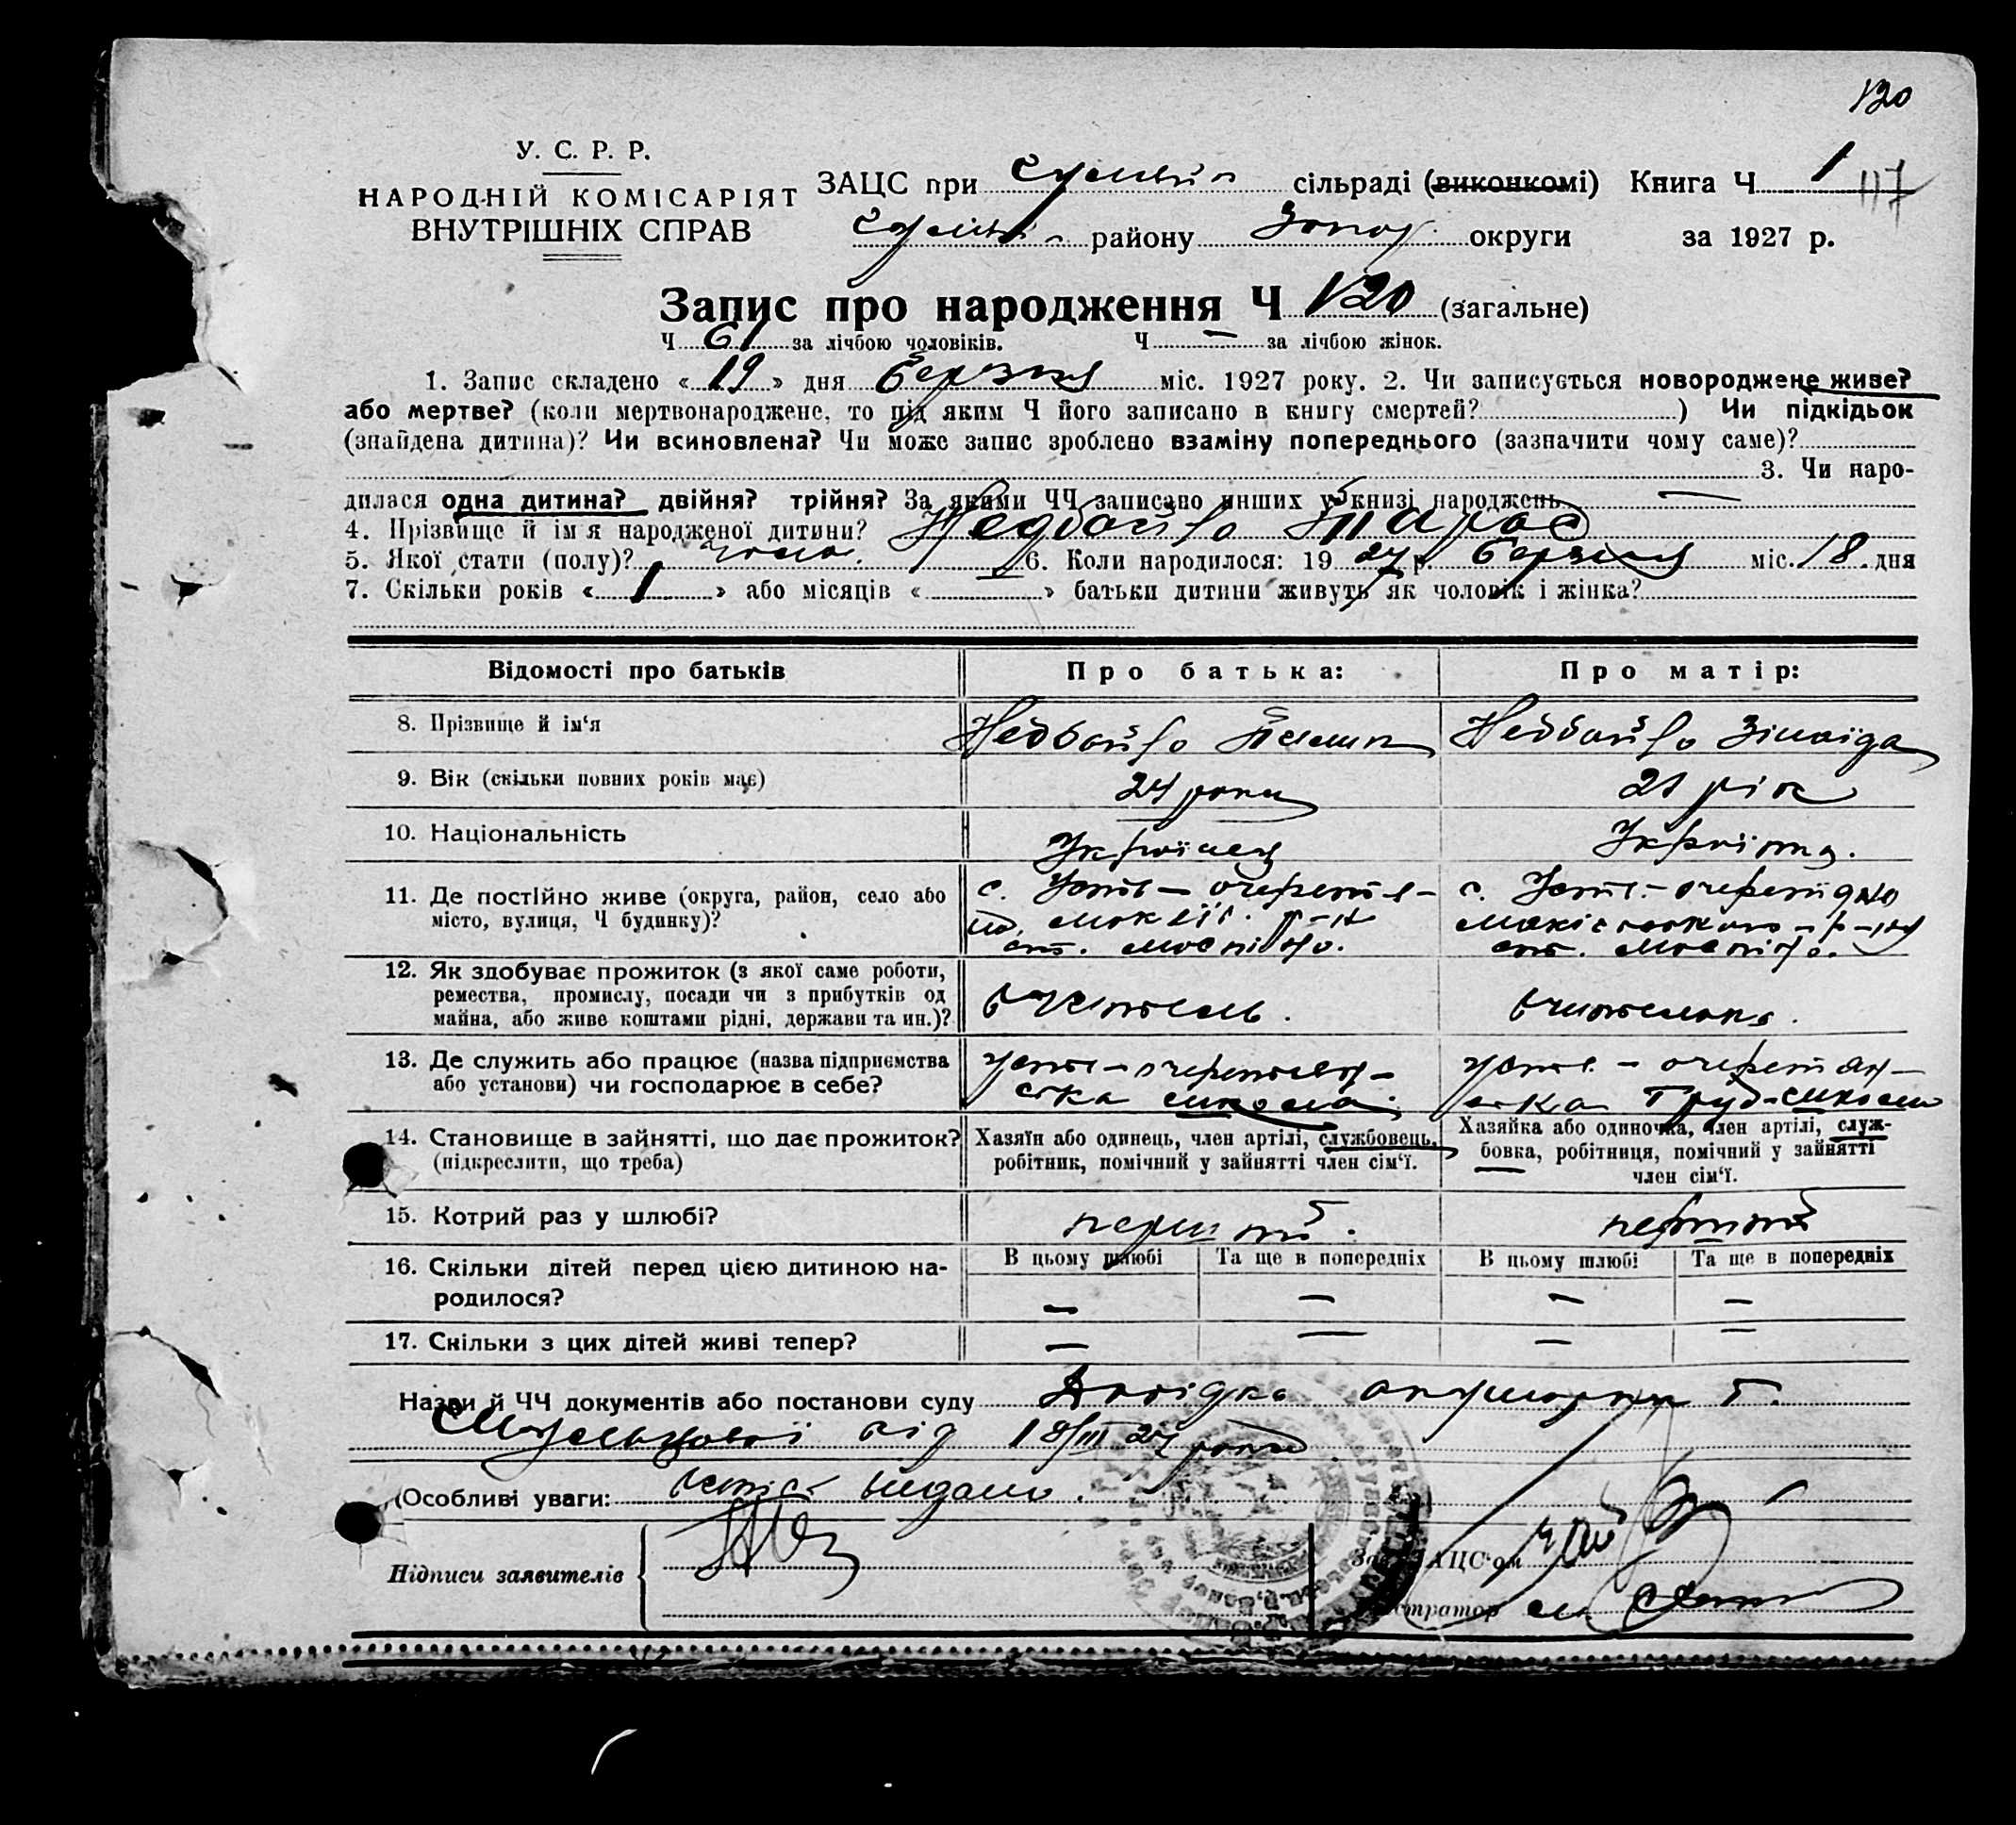 120
У. С. Р. Р.
НАРОДНІЙ КОМІСАРІЯТ
ВНУТРІШНІХ СПРАВ
ЗАЦС при сільраді (виконкомі) Книга Ч 1 117
району округи за 1927 р.
Запис про народження Ч 120 (загальне)
Ч 61 за лічбою чоловіків. Ч — за лічбою жінок.
1. Запис складено « 19 » дня березня міс. 1927 року. 2. Чи записується новороджене живе?
або мертве? (коли мертвонароджене, то під яким Ч його записано в книгу смертей? ) Чи підкідьок
(знайдена дитина)? Чи всиновлена? Чи може запис зроблено взаміну попереднього (зазначити чому саме)?
3. Чи наро-
дилася одна дитина? двійня? трійня? За якими ЧЧ записано инших у книзі народжень —
4. Прізвище й ім'я народженої дитини? Недбайло Тарас
5. Якої стати (полу)? чолов. 6. Коли народилося: 19 27 р. березня міс. 18 дня
7. Скільки років « 1 » або місяців « » батьки дитини живуть як чоловік і жінка?
Відомості про батьків Про батька: Про матір:
8. Прізвище й ім'я Недбайло Недбайло Зінаїда
9. Вік (скільки повних років має) 24 роки 21 рік
10. Національність Українец Українка.
11. Де постійно живе (округа, район, село або
місто, вулиця, Ч будинку)?
с. р-н
с. р-ну
12. Як здобуває прожиток (з якої саме роботи,
ремества, промислу, посади чи з прибутків од
майна, або живе коштами рідні, держави та ин.)?
вчитель. вчителька.
13. Де служить або працює (назва підприємства
або установи) чи господарює в себе?
ська школа.
ська Труд-школа
14. Становище в зайнятті, що дає прожиток?
(підкреслити, що треба)
Хазяїн або одинець, член артілі, службовець,
робітник, помічний у зайнятті член сім'ї.
Хазяйка або одиночка, член артілі, служ-
бовка, робітниця, помічний у зайнятті
член сім'ї.
15. Котрий раз у шлюбі? перший. перший
16. Скільки дітей перед цією дитиною на-
родилося?
В цьому шлюбі Та ще в попередніх В цьому шлюбі Та ще в попередніх
— — — —
17. Скільки з цих дітей живі тепер? — — — —
Назви й ЧЧ документів або постанови суду Довідка акушерки
від 18/III 27 року
Особливі уваги: видано.
Підписи заявителів
Зав. ЗАЦС'ом
Реєстратор